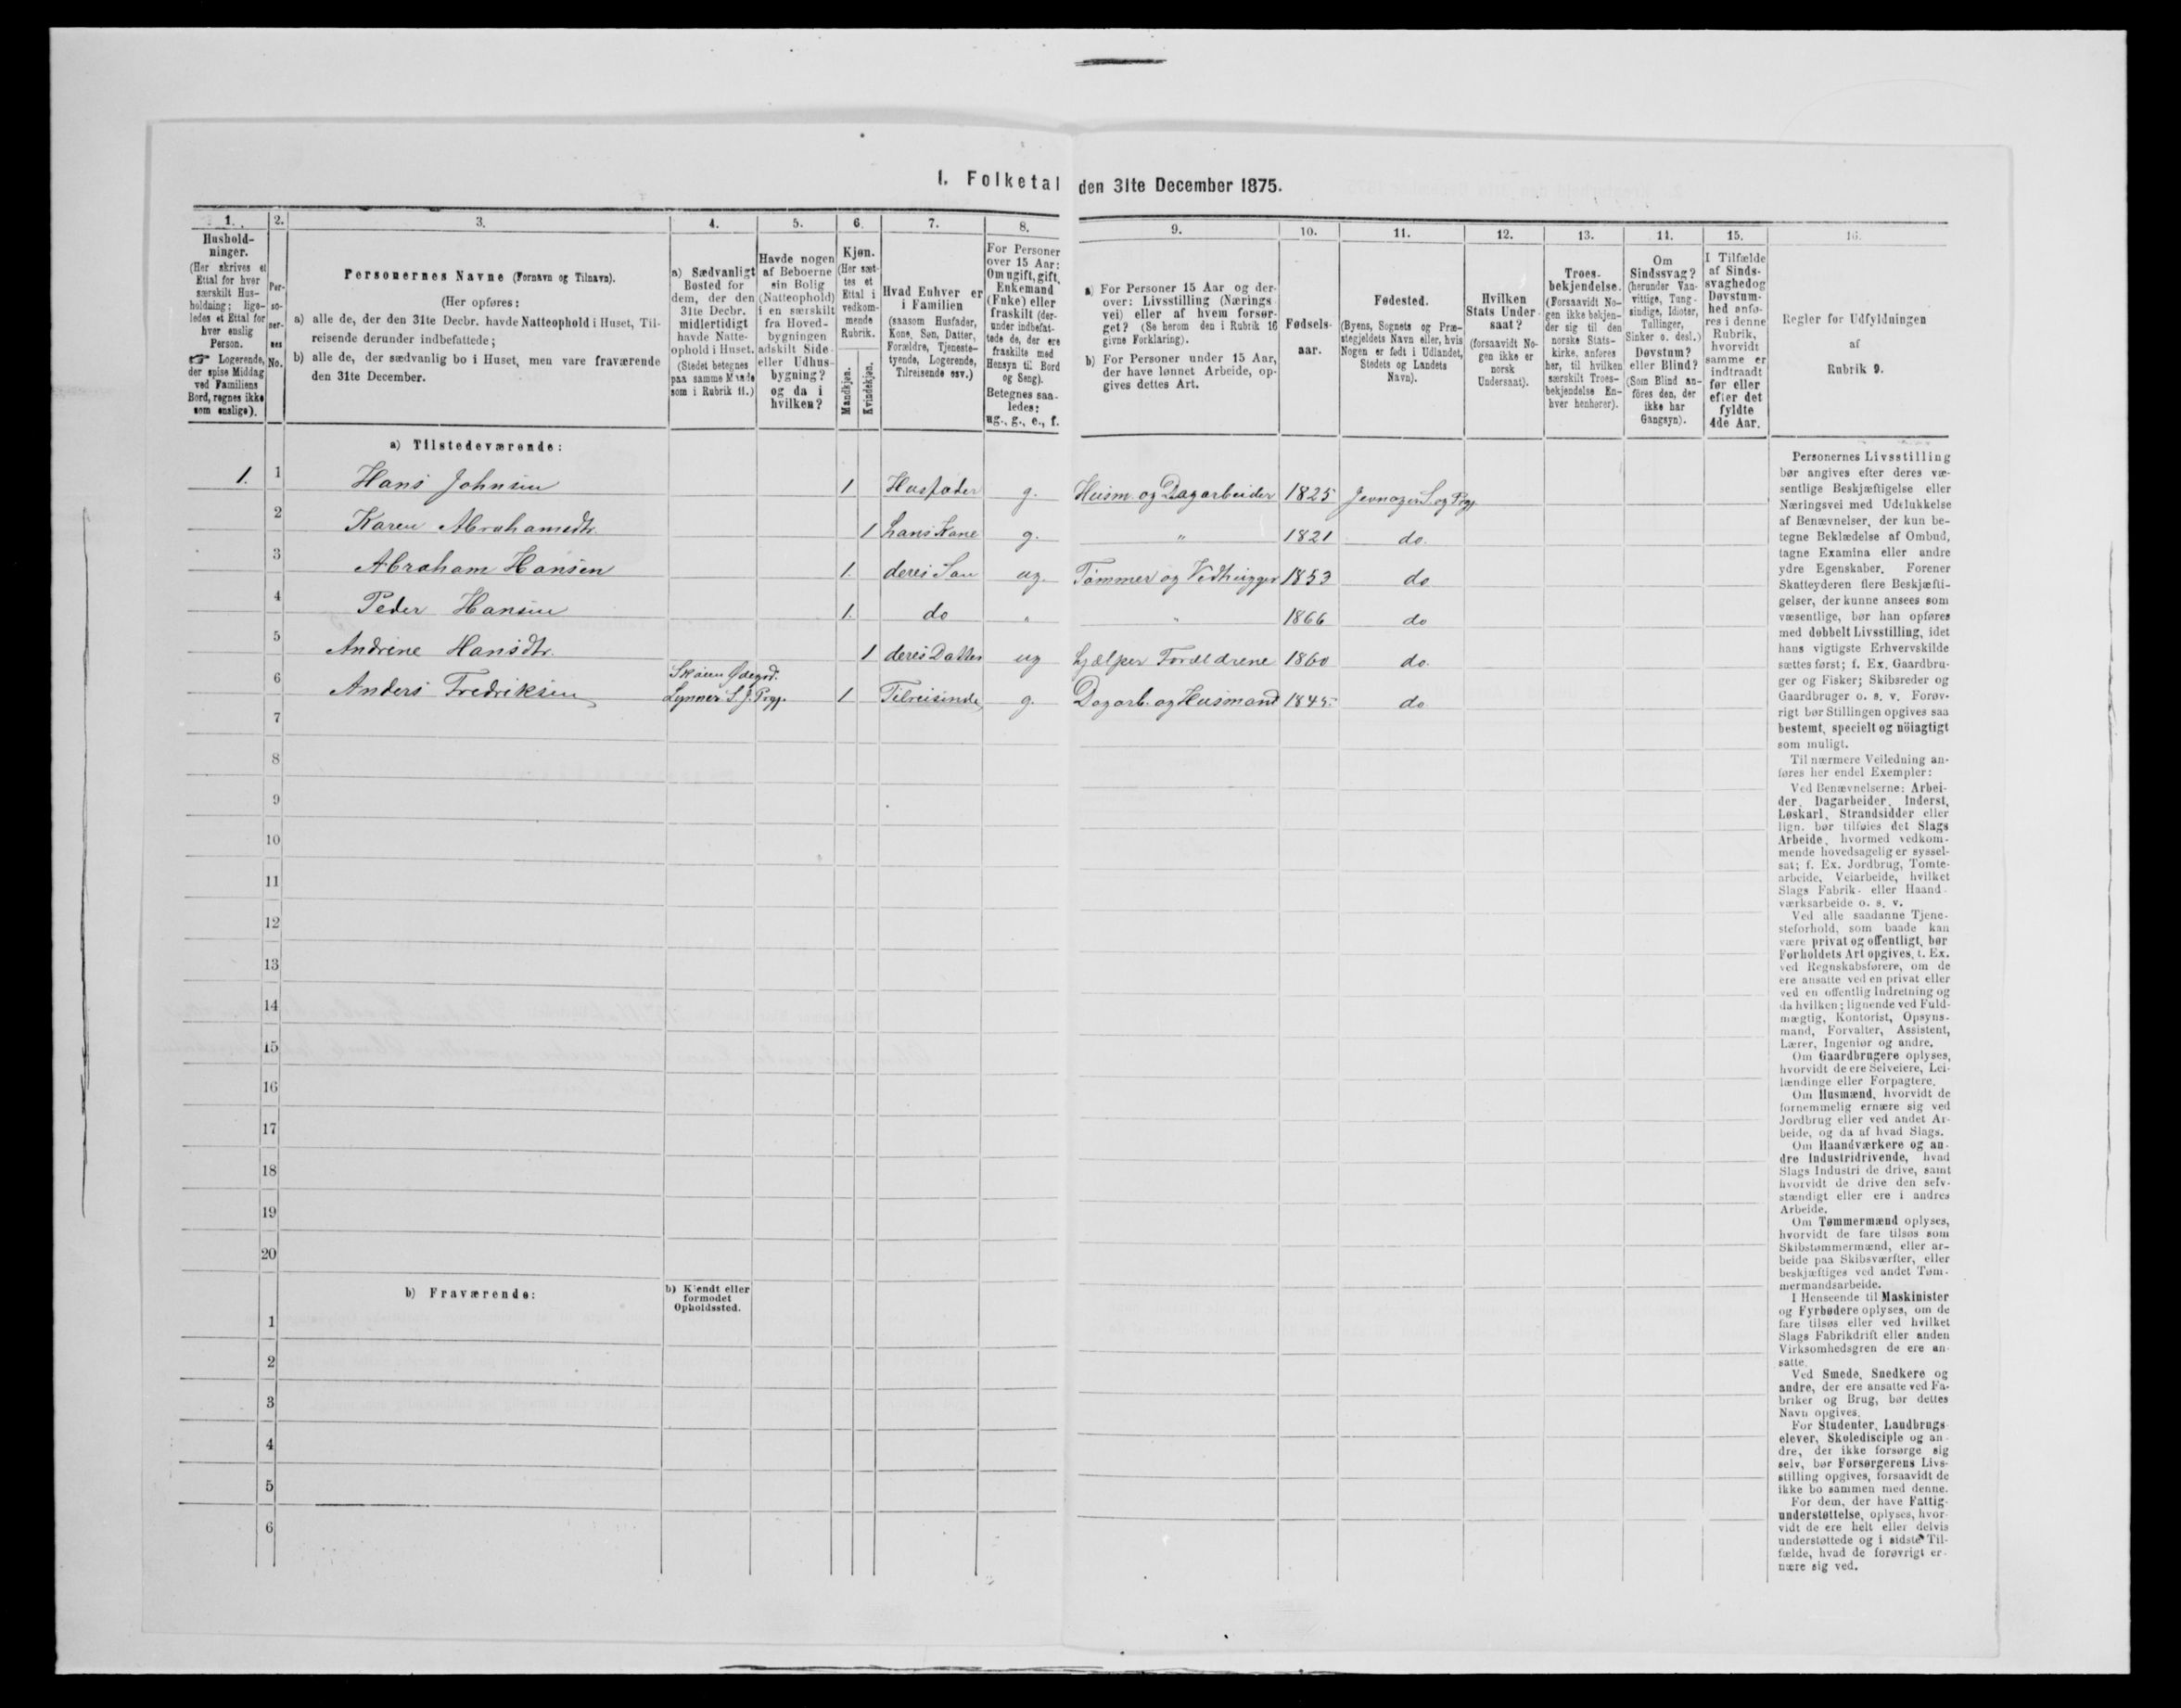 I. Folketal den 31te December 1875.
1.
Hushold-
ninger.
(Her skrives et
Ettal for hver
særskilt Hus-
holdning; lige-
ledes et Ettal for
hver enslig
Person.
☞ Logerende,
der spise Middag
ved Familiens
Bord, regnes ikke
som enslige).
2.
Per-
so-
ner-
nes
No.
3.
Personernes Navne (Fornavn og Tilnavn).
(Her opføres:
a) alle de, der den 31te Decbr. havde Natteophold i Huset, Til-
reisende derunder indbefattede;
b) alle de, der sædvanlig bo i Huset, men vare fraværende
den 31te December.
4.
a) Sædvanligt
Bosted for
dem, der den
31te Decbr.
midlertidigt
havde Natte-
ophold i Huset.
(Stedet betegnes
paa samme Maade
som i Rubrik 11.)
5.
Havde nogen
af Beboerne
sin Bolig
(Natteophold)
i en særskilt
fra Hoved-
bygningen
adskilt Side-
eller Udhus-
bygning?
og da i
hvilken?
6.
Kjøn.
(Her sæt-
tes et
Ettal i
vedkom-
mende
Rubrik.
Mandkjøn.
Kvindekjøn.
7.
Hvad Enhver er
i Familien
(saasom Husfader,
Kone, Søn, Datter,
Forældre, Tjeneste-
tyende, Logerende,
Tilreisende osv.)
8.
For Personer
over 15 Aar:
Om ugift, gift,
Enkemand
(Enke) eller
fraskilt (der-
under indbefat-
tede de, der ere
fraskilte med
Hensyn til Bord
og Seng).
Betegnes saa-
ledes:
ug., g., e., f.
9.
a) For Personer 15 Aar og der-
over: Livsstilling (Nærings-
vei) eller af hvem forsør-
get? (Se herom den i Rubrik 16
givne Forklaring).
b) For Personer under 15 Aar,
der have lønnet Arbeide, op-
gives dettes Art.
10.
Fødsels-
aar.
11.
Fødested.
(Byens, Sognets og Præ-
stegjeldets Navn eller, hvis
Nogen er født i Udlandet,
Stedets og Landets
Navn).
12.
Hvilken
Stats Under-
saat?
(forsaavidt No-
gen ikke er
norsk
Undersaat).
13.
Troes-
bekjendelse.
(Forsaavidt No-
gen ikke bekjen-
der sig til den
norske Stats-
kirke, anføres
her, til hvilken
særskilt Troes-
bekjendelse En-
hver henhører).
14.
Om
Sindssvag?
(herunder Van-
vittige, Tung-
sindige, Idioter,
Tullinger,
Sinker o. desl.)
Døvstum?
eller Blind?
(Som Blind an-
føres den, der
ikke har
Gangsyn).
15.
I Tilfælde
af Sinds-
svaghedog
Døvstum-
hed anfø-
res i denne
Rubrik,
hvorvidt
samme er
indtraadt
før eller
efter det
fyldte
4de Aar.
16.
Regler for Udfyldningen
af
Rubrik 9.
a) Tilstedeværende:
1. 1 Hans Johnsen 1 Husfader g. Husm. og Dagarbeider 1825 Jevnager S. og Prgj.
2 Karen Abrahamsdtr. 1 hans Kone g. " 1821 do.
3 Abraham Hansen 1. deres Søn ug. Tømmer og Vedhugger 1853 do
4 Peder Hansen 1. do " " 1866 do
5 Andrine Hansdtr. 1 deres Datter ug hjælper Forældrene 1860 do.
Skøien Ødegrd.
6 Anders Fredriksen Lynner S. J. Prgj. 1 Tilreisende g. Dagarb. og Husmand 1845. do
7
8
9
10
11
12
13
14
15
16
17
18
19
20
b) Fraværende:
b) Kjendt eller
formodet
Opholdssted.
1
2
3
4
5
6
Personernes Livsstilling
bør angives efter deres væ-
sentlige Beskjæftigelse eller
Næringsvei med Udelukkelse
af Benævnelser, der kun be-
tegne Beklædelse af Ombud,
tagne Examina eller andre
ydre Egenskaber. Forener
Skatteyderen flere Beskjæfti-
gelser, der kunne ansees som
væsentlige, bør han opføres
med dobbelt Livsstilling, idet
hans vigtigste Erhvervskilde
sættes først; f. Ex. Gaardbru-
ger og Fisker; Skibsreder og
Gaardbruger o. s. v. Forøv-
rigt bør Stillingen opgives saa
bestemt, specielt og nöiagtigt
som muligt.
Til nærmere Veiledning an-
føres her endel Exempler:
Ved Benævnelserne: Arbei-
der, Dagarbeider, Inderst,
Løskarl, Strandsidder eller
lign. bør tilføies det Slags
Arbeide, hvormed vedkom-
mende hovedsagelig er syssel-
sat; f. Ex. Jordbrug, Tomte-
arbeide, Veiarbeide, hvilket
Slags Fabrik- eller Haand-
værksarbeide o. s. v.
Ved alle saadanne Tjene-
steforhold, som baade kan
være privat og offentligt, bør
Forholdets Art opgives, t. Ex.
ved Regnskabsførere, om de
ere ansatte ved en privat eller
ved en offentlig Indretning og
da hvilken; lignende ved Fuld-
mægtig, Kontorist, Opsyns-
mand, Forvalter, Assistent,
Lærer, Ingeniør og andre.
Om Gaardbrugere oplyses,
hvorvidt de ere Selveiere, Lei-
lændinge eller Forpagtere.
Om Husmænd, hvorvidt de
fornemmelig ernære sig ved
Jordbrug eller ved andet Ar-
beide, og da af hvad Slags.
Om Haandværkere og an-
dre Industridrivende, hvad
Slags Industri de drive, samt
hvorvidt de drive den selv-
stændigt eller ere i andres
Arbeide.
Om Tømmermænd oplyses,
hvorvidt de fare tilsøs som
Skibstømmermænd, eller ar-
beide paa Skibsværfter, eller
beskjæftiges ved andet Tøm-
mermandsarbeide.
I Henseende til Maskinister
og Fyrbødere oplyses, om de
fare tilsøs eller ved hvilket
Slags Fabrikdrift eller anden
Virksomhedsgren de ere an-
satte.
Ved Smede, Snedkere og
andre, der ere ansatte ved Fa-
briker og Brug, bør dettes
Navn opgives.
For Studenter, Landbrugs-
elever, Skoledisciple og an-
dre, der ikke forsørge sig
selv, bør Forsørgerens Livs-
stilling opgives, forsaavidt de
ikke bo sammen med denne.
For dem, der have Fattig-
understøttelse, oplyses, hvor-
vidt de ere helt eller delvis
understøttede og i sidste Til-
fælde, hvad de forøvrigt er-
nære sig ved.